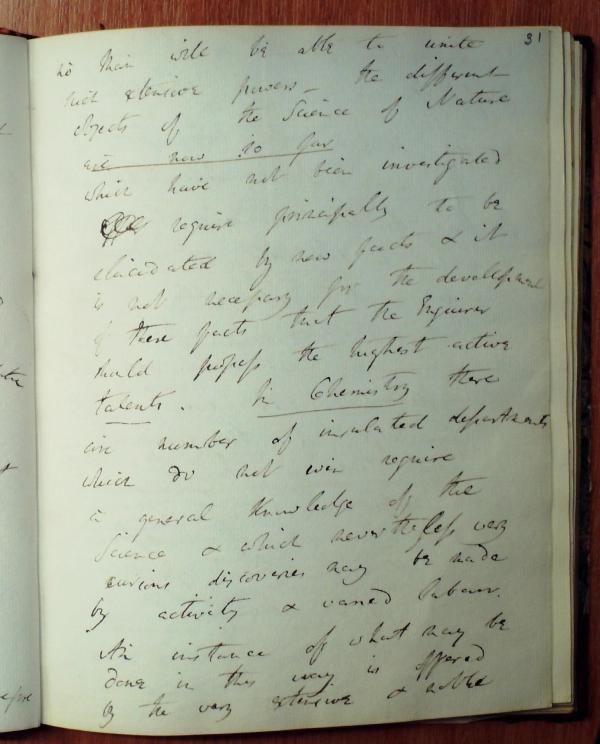 31
no Man will be able to unite
such extensive powers – the different
objects of the Science of Nature
are now so far
which have not been investigated
require principally to be
elucidated by new facts & it
is not necessary for the development
of these facts that the Enquirer
should possess the highest active
talents. In Chemistry there
are number of insulated departments
which do not even require
a general Knowledge of the
Science & which nevertheless very
curious discoveries may be made
by activity & varied labour.
An instance of what may be
done in this way is offered
by the very extensive & noble